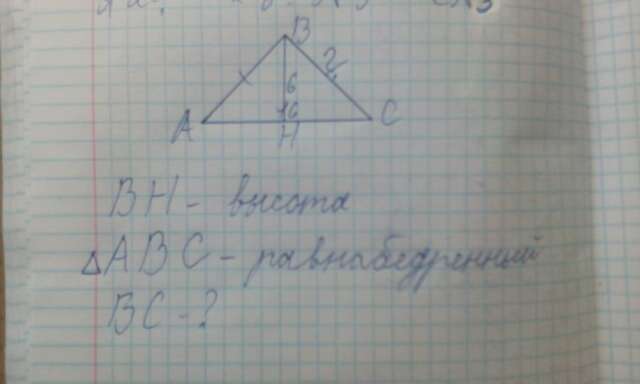 B
?
6
16
A
H
C
BH - высота
△ABC - равнабедренный
BC - ?